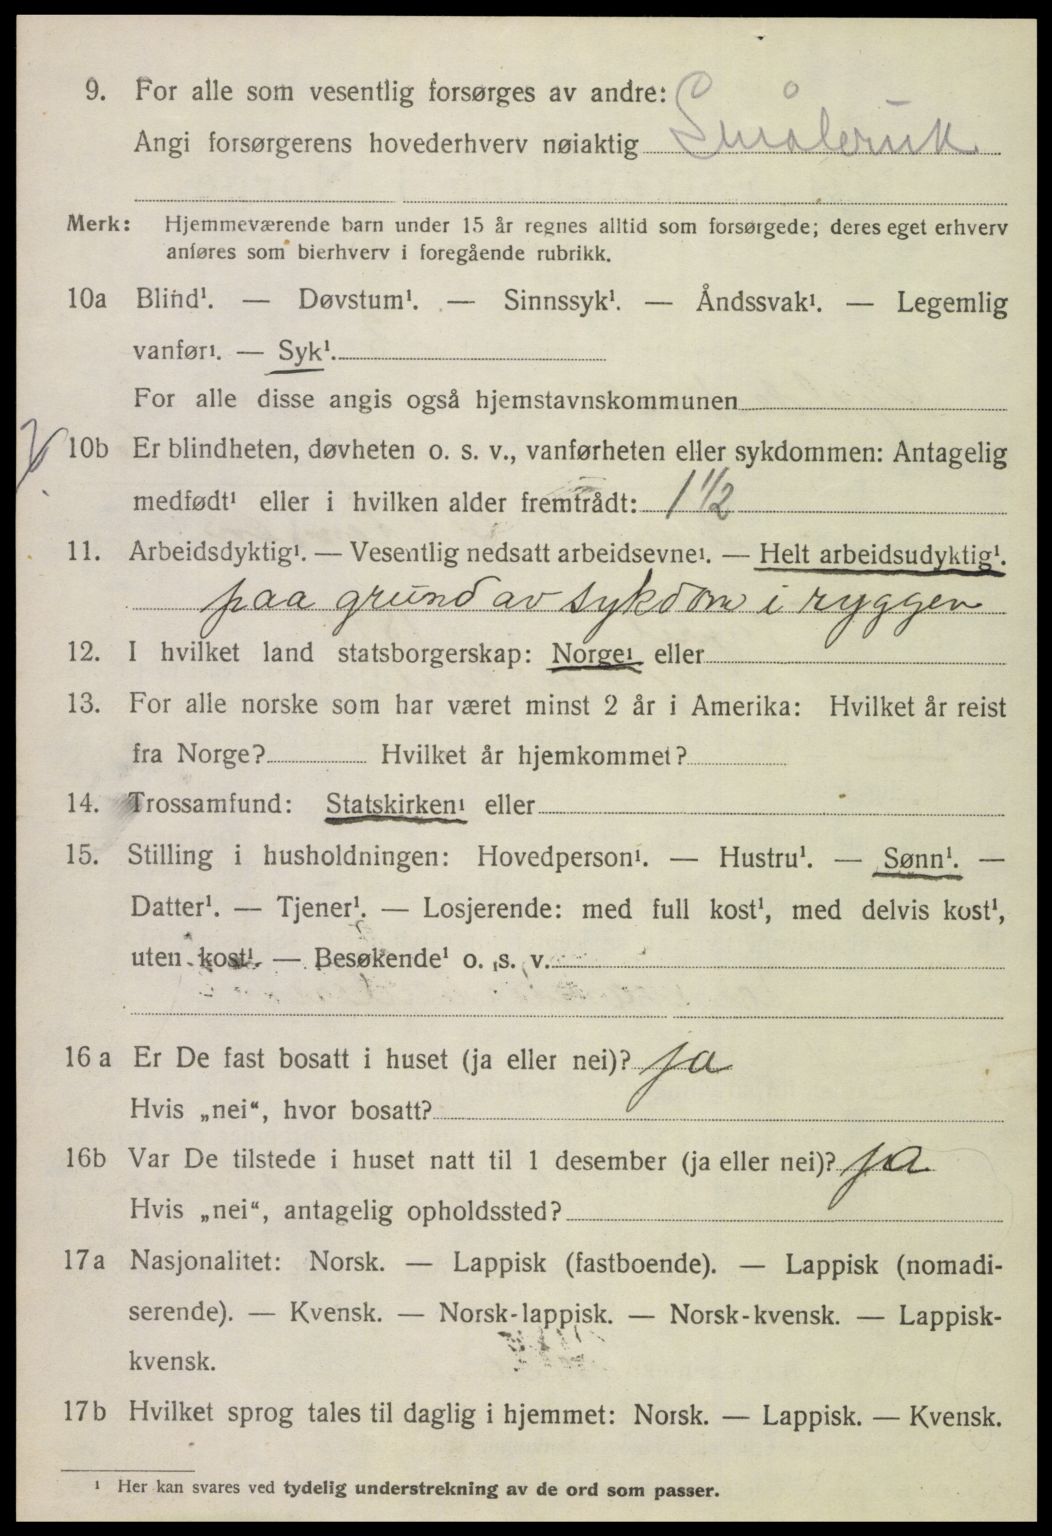 9. For alle som vesentlig forsørges av andre:
Angi forsørgerens hovederhverv nøiaktig Småbruk
Merk: Hjemmeværende barn under 15 år regnes alltid som forsørgede; deres eget erhverv
anføres som bierhverv i foregående rubrikk.
10a Blind¹. — Døvstum¹. — Sinnssyk¹. — Åndssvak¹. — Legemlig
vanfør¹. — Syk¹.
For alle disse angis også hjemstavnskommunen
10b Er blindheten, døvheten o. s. v., vanførheten eller sykdommen: Antagelig
medfødt¹ eller i hvilken alder fremtrådt: 1 1/2
11. Arbeidsdyktig¹. — Vesentlig nedsatt arbeidsevne¹. — Helt arbeidsudyktig¹.
paa grund av sykdom i ryggen
12. I hvilket land statsborgerskap: Norge¹ eller
13. For alle norske som har været minst 2 år i Amerika: Hvilket år reist
fra Norge? Hvilket år hjemkommet?
14. Trossamfund: Statskirken¹ eller
15. Stilling i husholdningen: Hovedperson¹. — Hustru¹. — Sønn¹. —
Datter¹. — Tjener¹. — Losjerende: med full kost¹, med delvis kost¹,
uten kost¹. — Besøkende¹ o. s. v.
16 a Er De fast bosatt i huset (ja eller nei)? ja
Hvis „nei“, hvor bosatt?
16b Var De tilstede i huset natt til 1 desember (ja eller nei)? ja
Hvis „nei“, antagelig opholdssted?
17a Nasjonalitet: Norsk. — Lappisk (fastboende). — Lappisk (nomadi-
serende). — Kvensk. — Norsk-lappisk. — Norsk-kvensk. — Lappisk-
kvensk.
17b Hvilket sprog tales til daglig i hjemmet: Norsk. — Lappisk. — Kvensk.
¹ Her kan svares ved tydelig understrekning av de ord som passer.